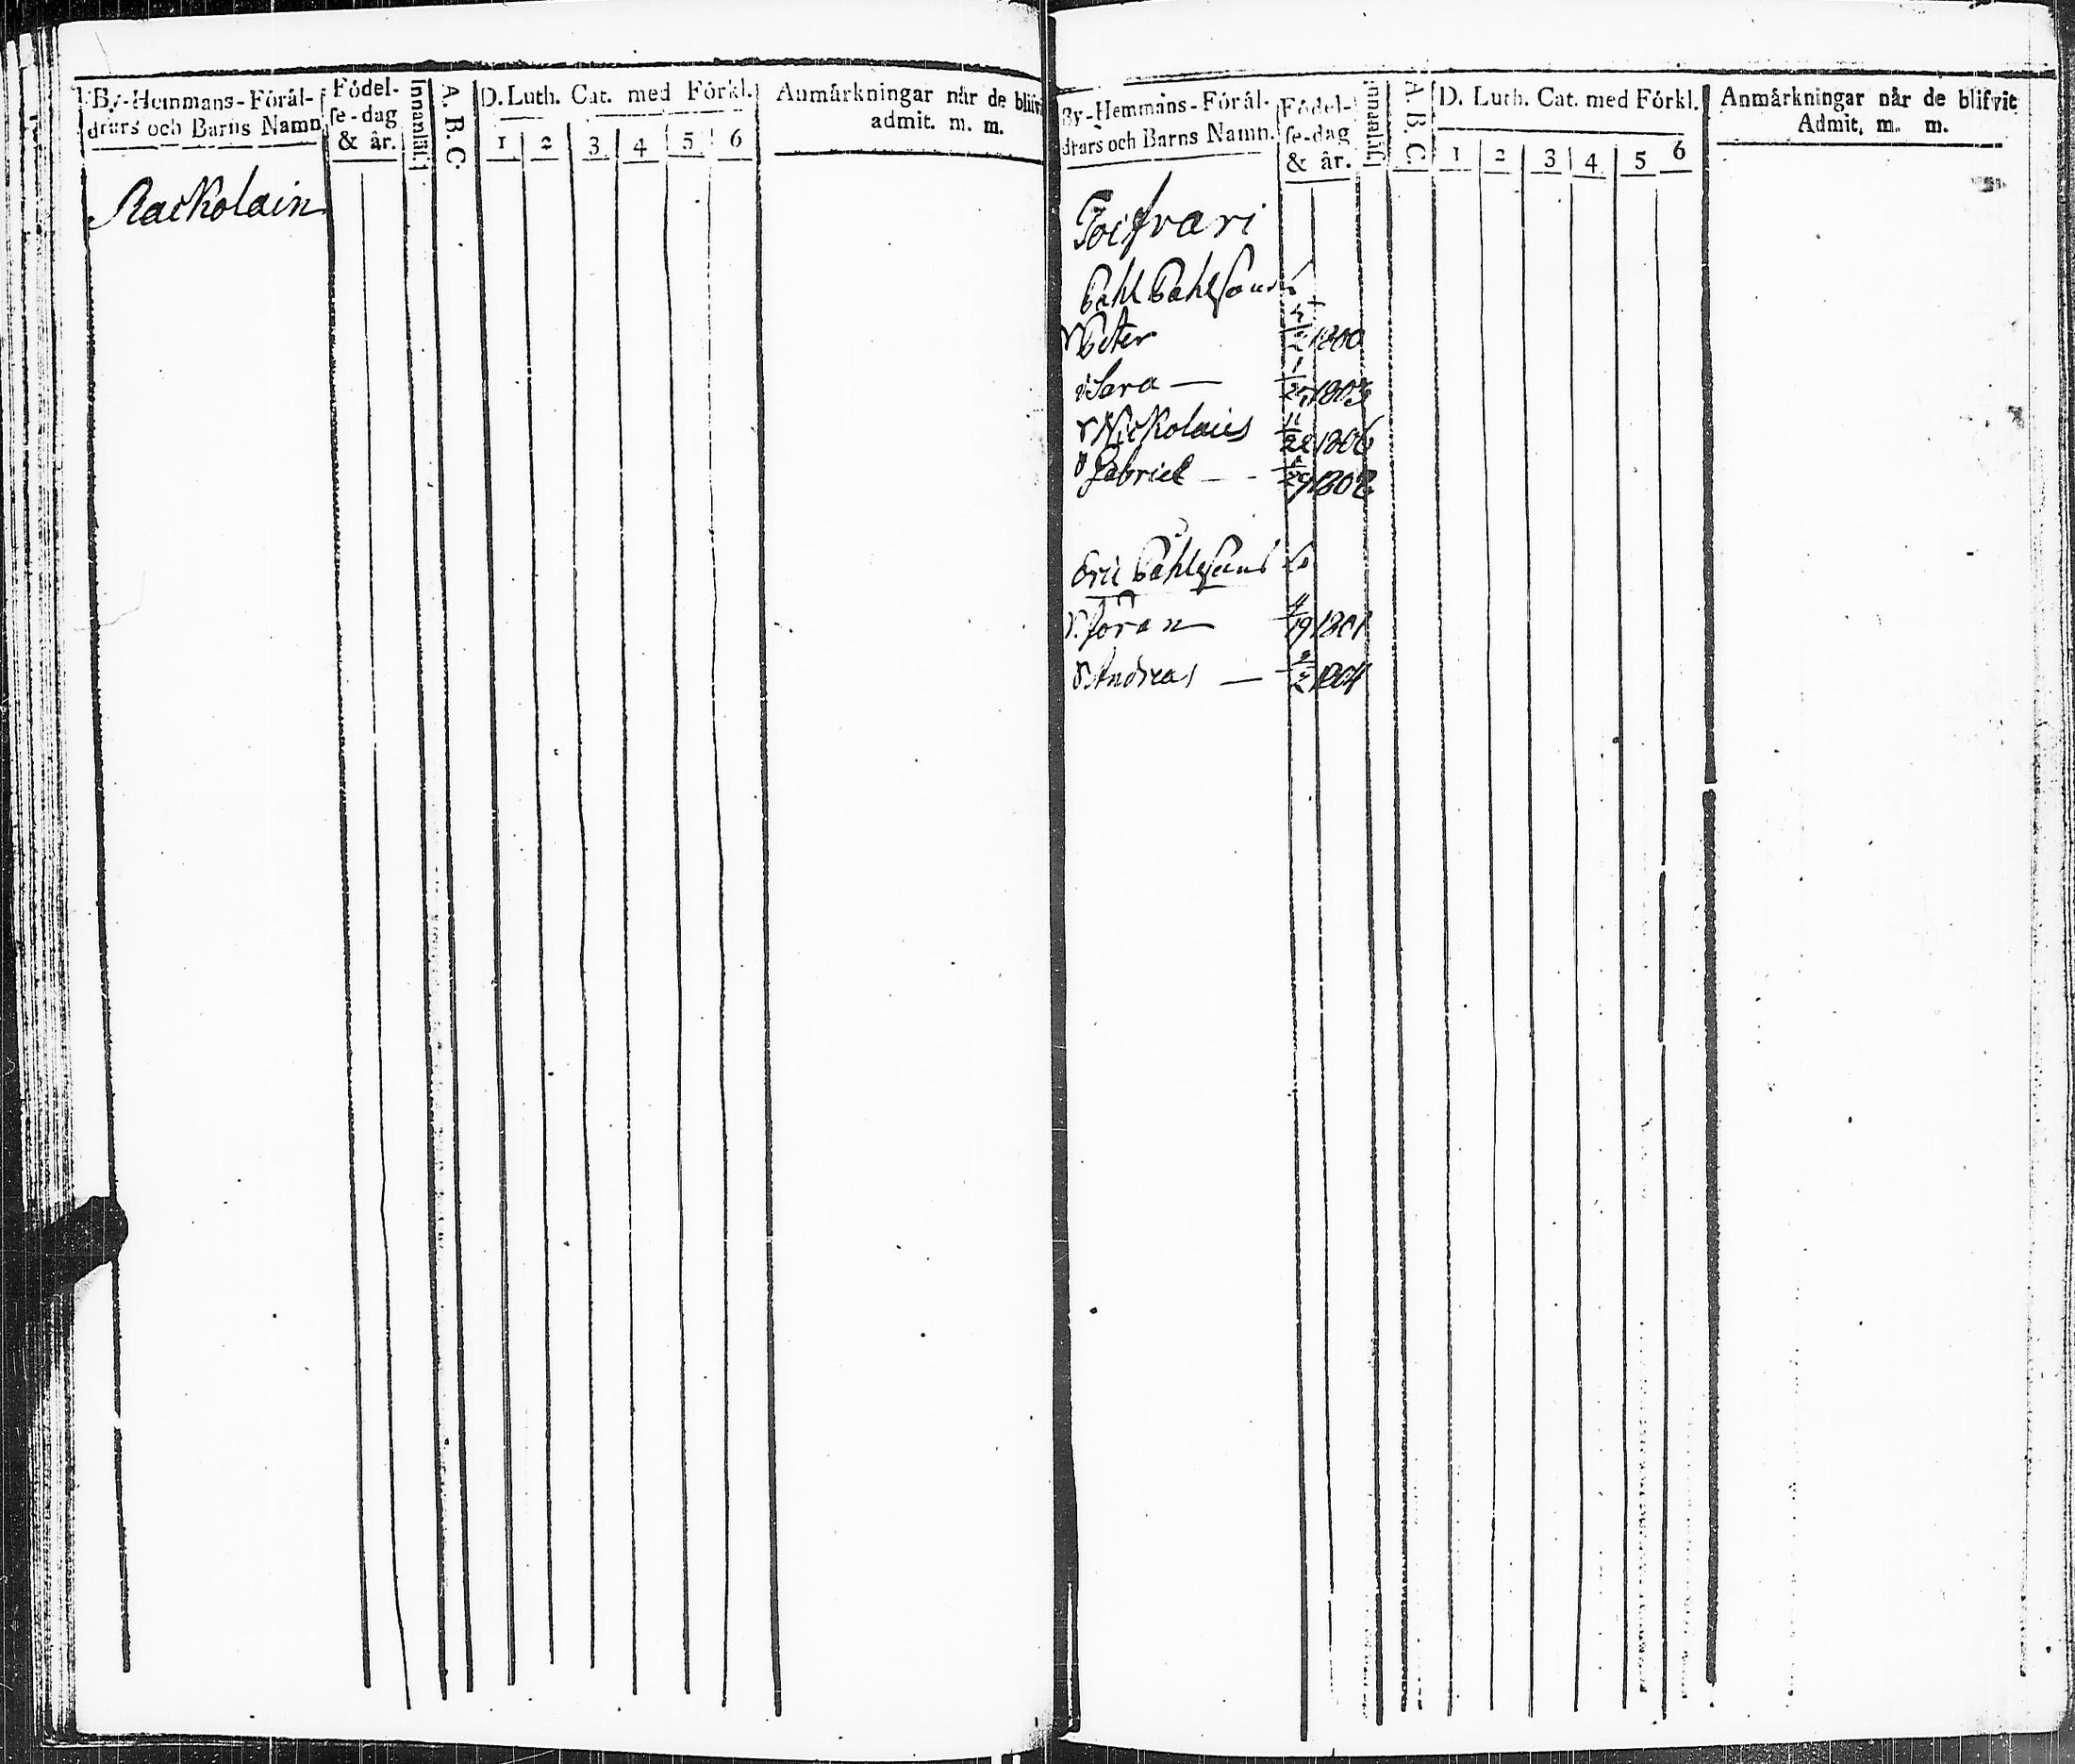 By-Hemmans-Förål-
drars och Barns Namn
Födel-
se-dag
& år.
Innanläs.
A. B. C.
D. Luth. Cat. med Förkl.
1 2 3 4 5 6
Anmårkningar når de blifv
admit. m. m.
Rackolain
By-Hemmans-Förål-
drars och Barns Namn.
Födel-
se-dag
& år.
Innanläs.
A. B. C.
D. Luth. Cat. med Förkl.
1 2 3 4 5 6
Anmårkningar når de blifvit
Admit, m. m.
Påhl Påhlsons
Peter 1800
Sara — 1803
Nickolaus 11/22 1806
Gabriel — 1808
Eric Påhlsons
Jöran 4/19 1801
Andreas — 1804